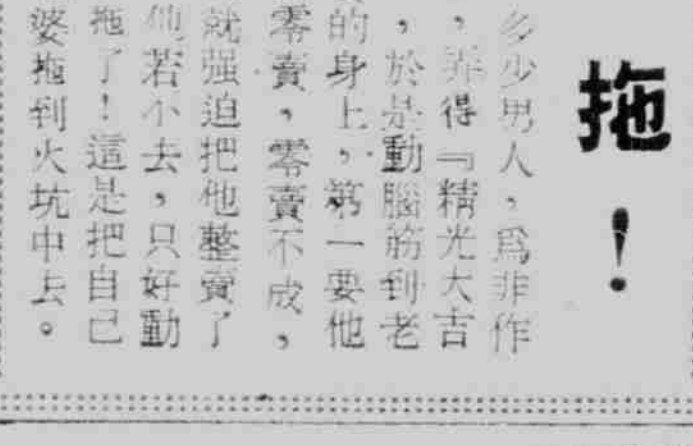 拖！
多少男人，爲非作
，弄得『精光大吉
，於是動腦筋到老
的身上，第一要他
零賣，零賣不成，
就强迫把他整賣了
他若不去，只好動
拖了！這是把自己
婆拖到火坑中去。